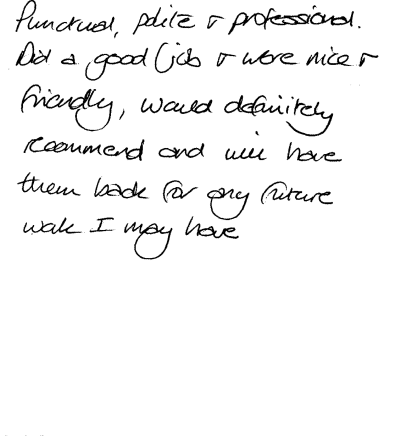 Punctual, polite & professional.
Did a good job & were nice &
friendly, would definitely
recommend and will have
them back for any future
work I may have